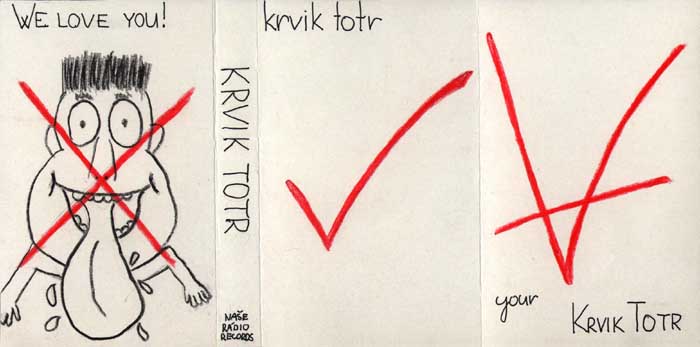 WE LOVE YOU!
KRVIK TOTR
NAŠE
RÁDIO
RECORDS
krvik totr
your
KRVIK TOTR